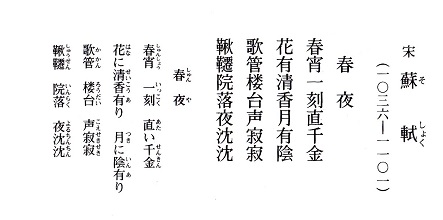 宋 蘇 軾
(一〇三六―一一〇一)
春 夜
春宵一刻直千金
花有清香月有陰
歌管楼台声寂寂
鞦韆院落夜沈沈
春 夜
春宵 一刻 直い千金
花に清香有り 月に陰有り
歌管 楼台 声寂寂
鞦韆 院落 夜沈沈